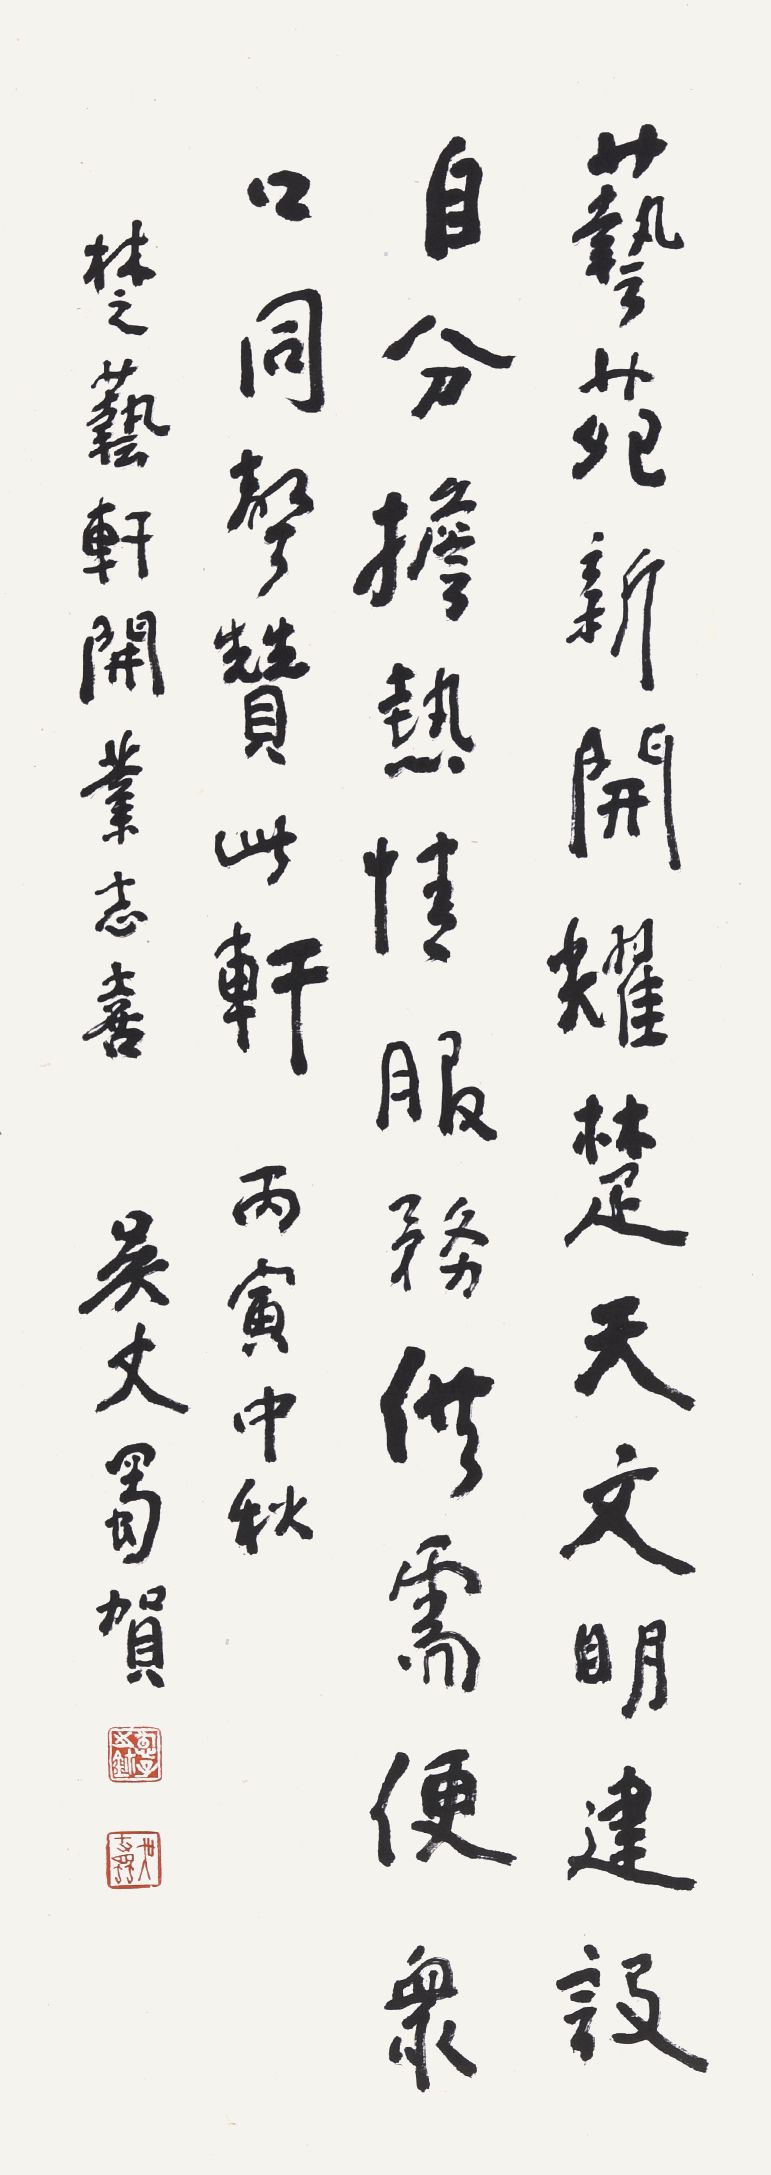 藝苑新開耀楚天文明建設
自分擔熱情服務供需便衆
口同聲贊此軒 丙寅中秋
楚藝軒開業志喜 吳丈蜀賀